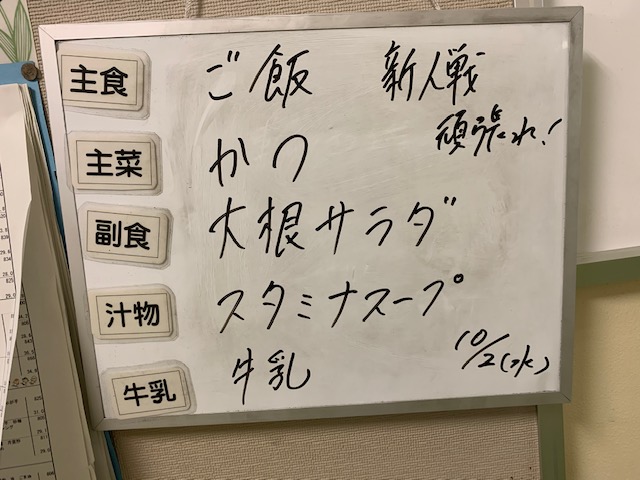 主食 ご飯 新人戦
頑張れ!
主菜 かつ
副食 大根サラダ
汁物 スタミナスープ
牛乳 牛乳
10/2(水)